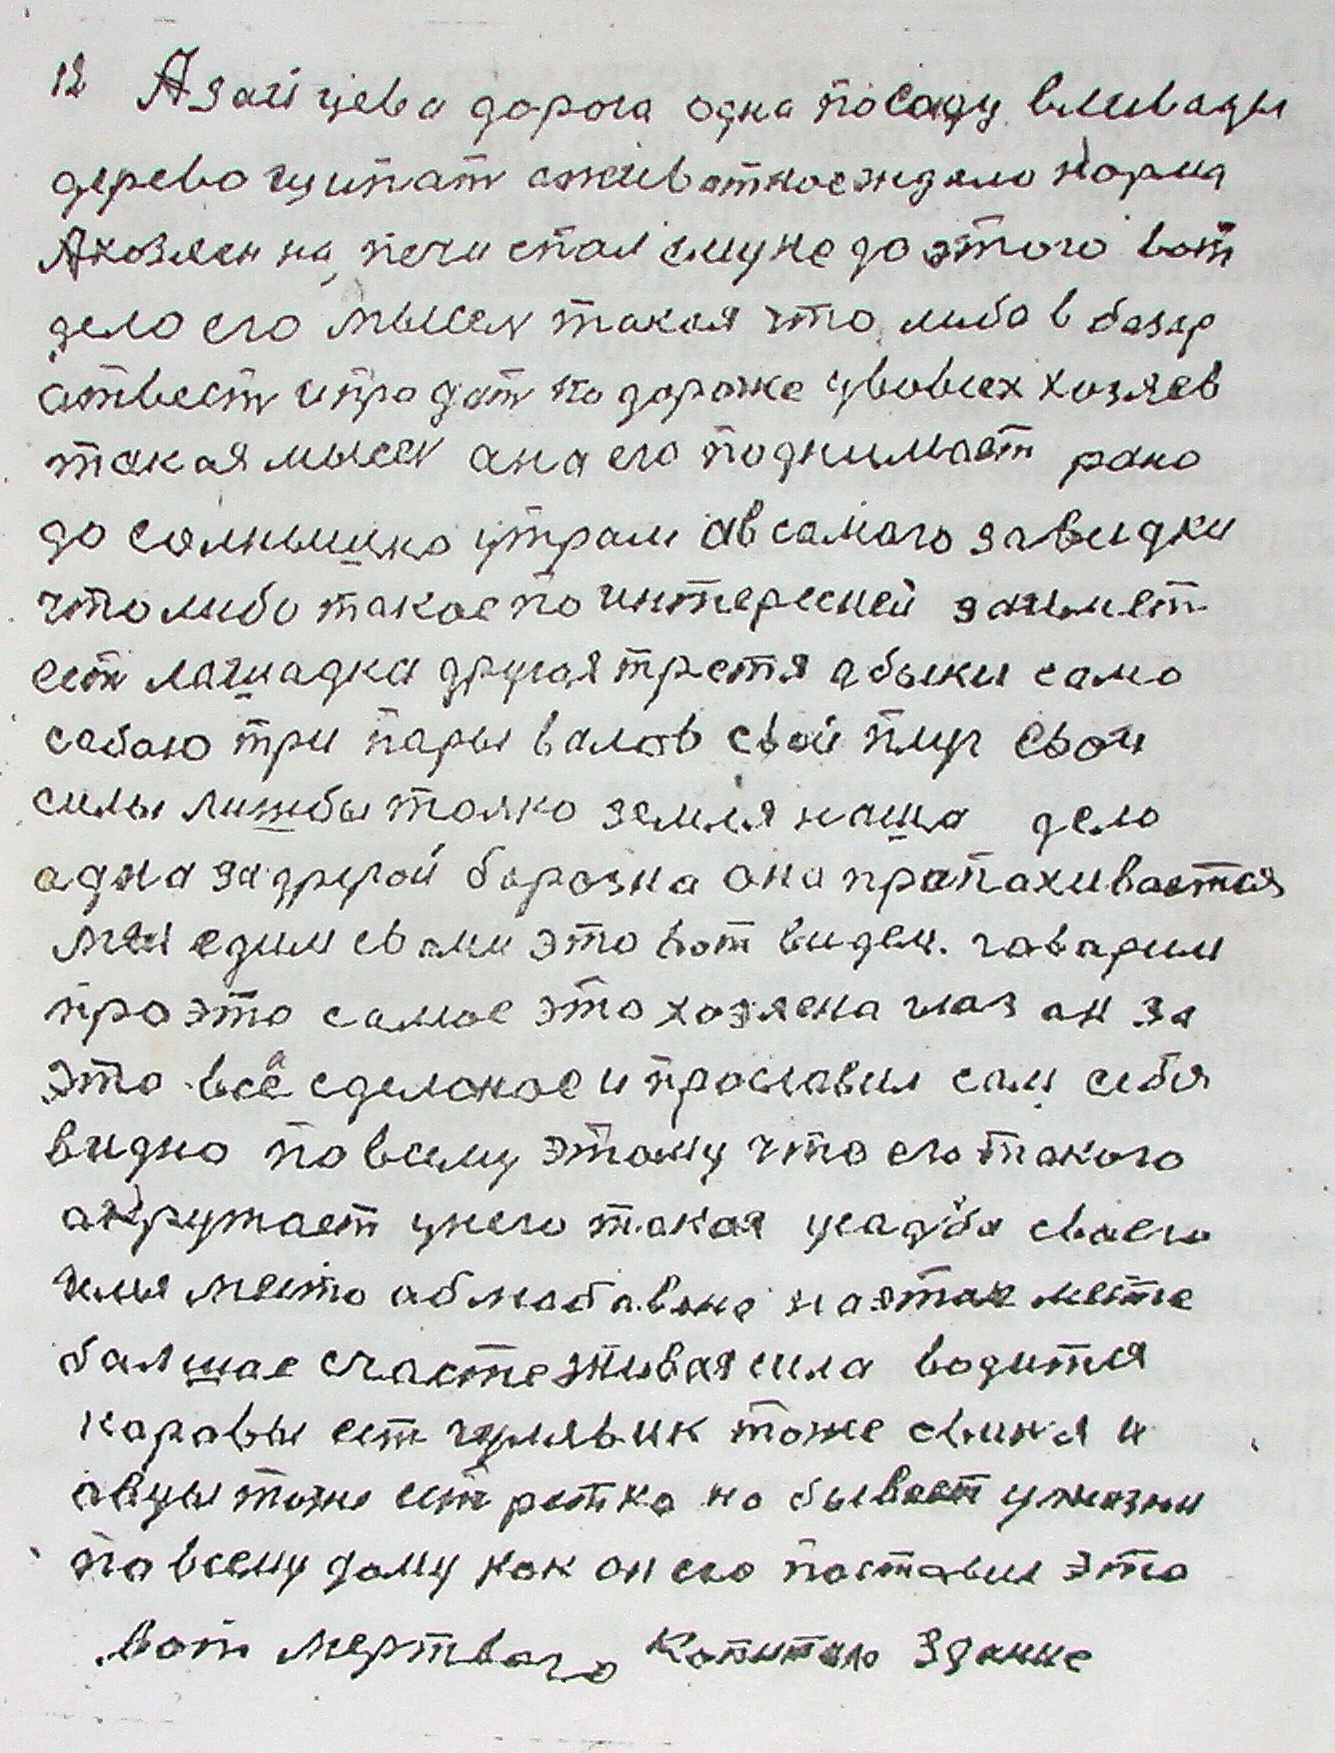 12 А зайцева дорога одна по саду вливады
дерево щипат а животное ждало корма
Аковлен на печи спал ему не до этого вот
дело его мысел такая что либо в базар
атвести и продат по дароже у вовсех хозяев
такая мысел ана его поднимает рано
до солнышко утрам а в самаго завидки
что либо такое по интересней займет
ест лашадка другая третя а быки само
сабаю три пары валов свой плуг свои
силы лиш бы толко земля наша дело
адна за другой барозна она прапахивается
мы едим с вами это вот видем. гаварим
про это самое это хозяена глаз он за
это всё сделоное и прославил сам себя
видно по всему этому что его такого
акружает у него такая усадба своего
имя место аблюбавоно на этом месте
балшое счасте живая сила водится
каровы ест гуляьвик тоже свиня и
авцы тоже ест ретко но бывает у жизни
по всему дому как он его поставил это
вот мертваго капитало здание